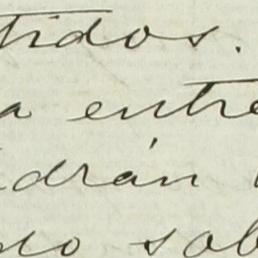 tidos.
a entre
drán
do sob